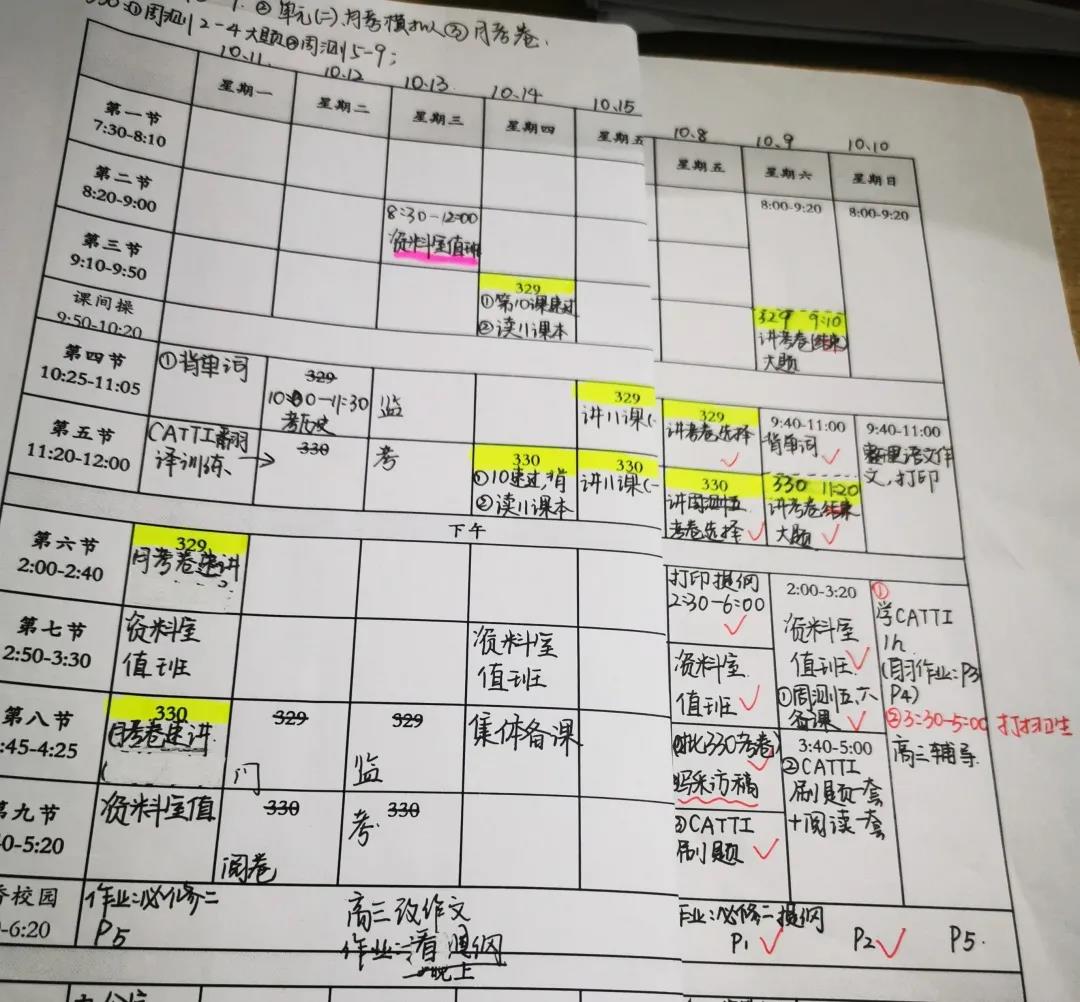 ②单元(二)、月考模拟 ③月考卷.
330:①周测2-4大题②周测5-9;
10.11 10.12 10.13 10.14 10.15
星期一 星期二 星期三 星期四 星期五
10.8 10.9 10.10
星期五 星期六 星期日
第一节
7:30-8:10
8:00-9:20 8:00-9:20
第二节
8:20-9:00
8:30-12:00
资料室值班
第三节
9:10-9:50
329
①第10课速过
②读11课本
329 9:10
讲考卷(结束)
大题
课间操
9:50-10:20
第四节
10:25-11:05
①背单词
329
10:00-11:30
监
329
讲11课(-
329
讲考卷选择
9:40-11:00
背单词
9:40-11:00
整理语文作
文,打印
第五节
11:20-12:00
CATTI翻
译训练
330
考
330
①10速过,背
②读11课本
330
讲11课(-
330
讲周测五
考卷选择
330 11:20
讲考卷结束
大题
下午
第六节
2:00-2:40
329
月考卷速讲
打印提纲
2:30-6:00
2:00-3:20
资料室
值班
①周测五、六
备课
①
学CATTI
1h
(自习作业:P3
P4)
②3:30-5:00 打扫卫生
高三辅导
第七节
2:50-3:30
资料室
值班
资料室
值班
资料室
值班
第八节
:45-4:25
330
月考卷速讲
329
329
监
集体备课
采访稿
3:40-5:00
②CATTI
刷题一套
+阅读一套
第九节
0-5:20
资料室值
330
阅卷
330
考
③CATTI
刷题
校园
-6:20
作业:必修二
P5
高三改作文
作业:看提纲
晚上
作业:必修二提纲
P1 P2 P5.